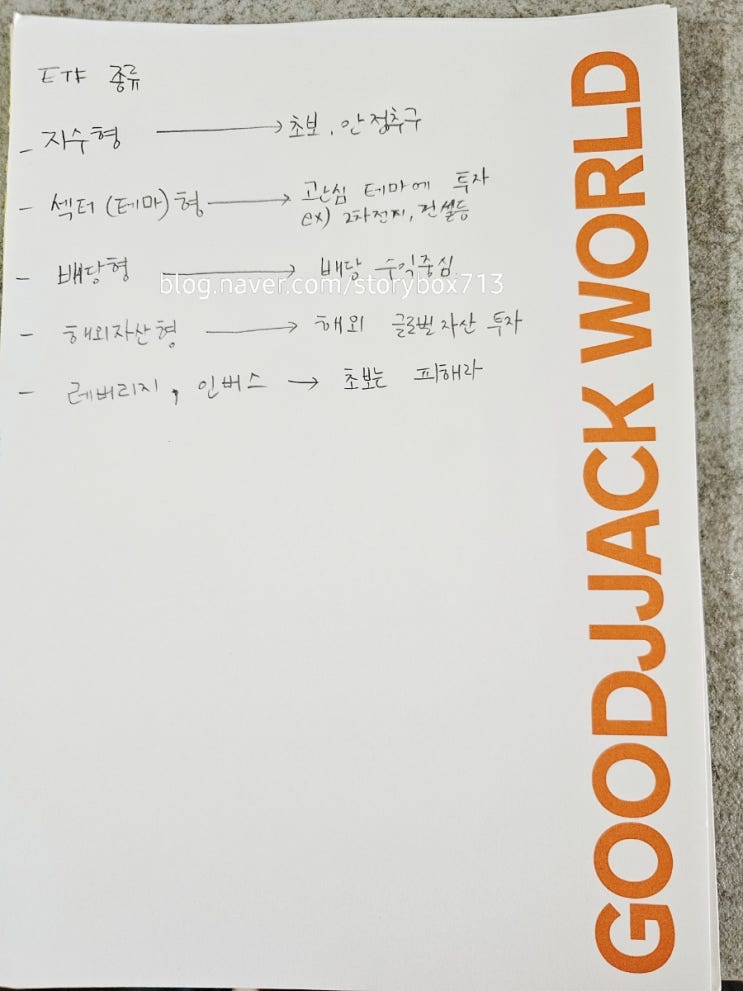 ETF 종류
- 지수형 → 초보, 안정추구
- 섹터 (테마) 형 → 고난심 테마에 투자
ex) 2차전지, 건설등
- 배당형 → 배당 수익중심
blog.naver.com/storybox713
- 해외자산형 → 해외 글로벌자산 투자
- 레버리지, 인버스 → 초보는 피해라
GOODJJACK WORLD